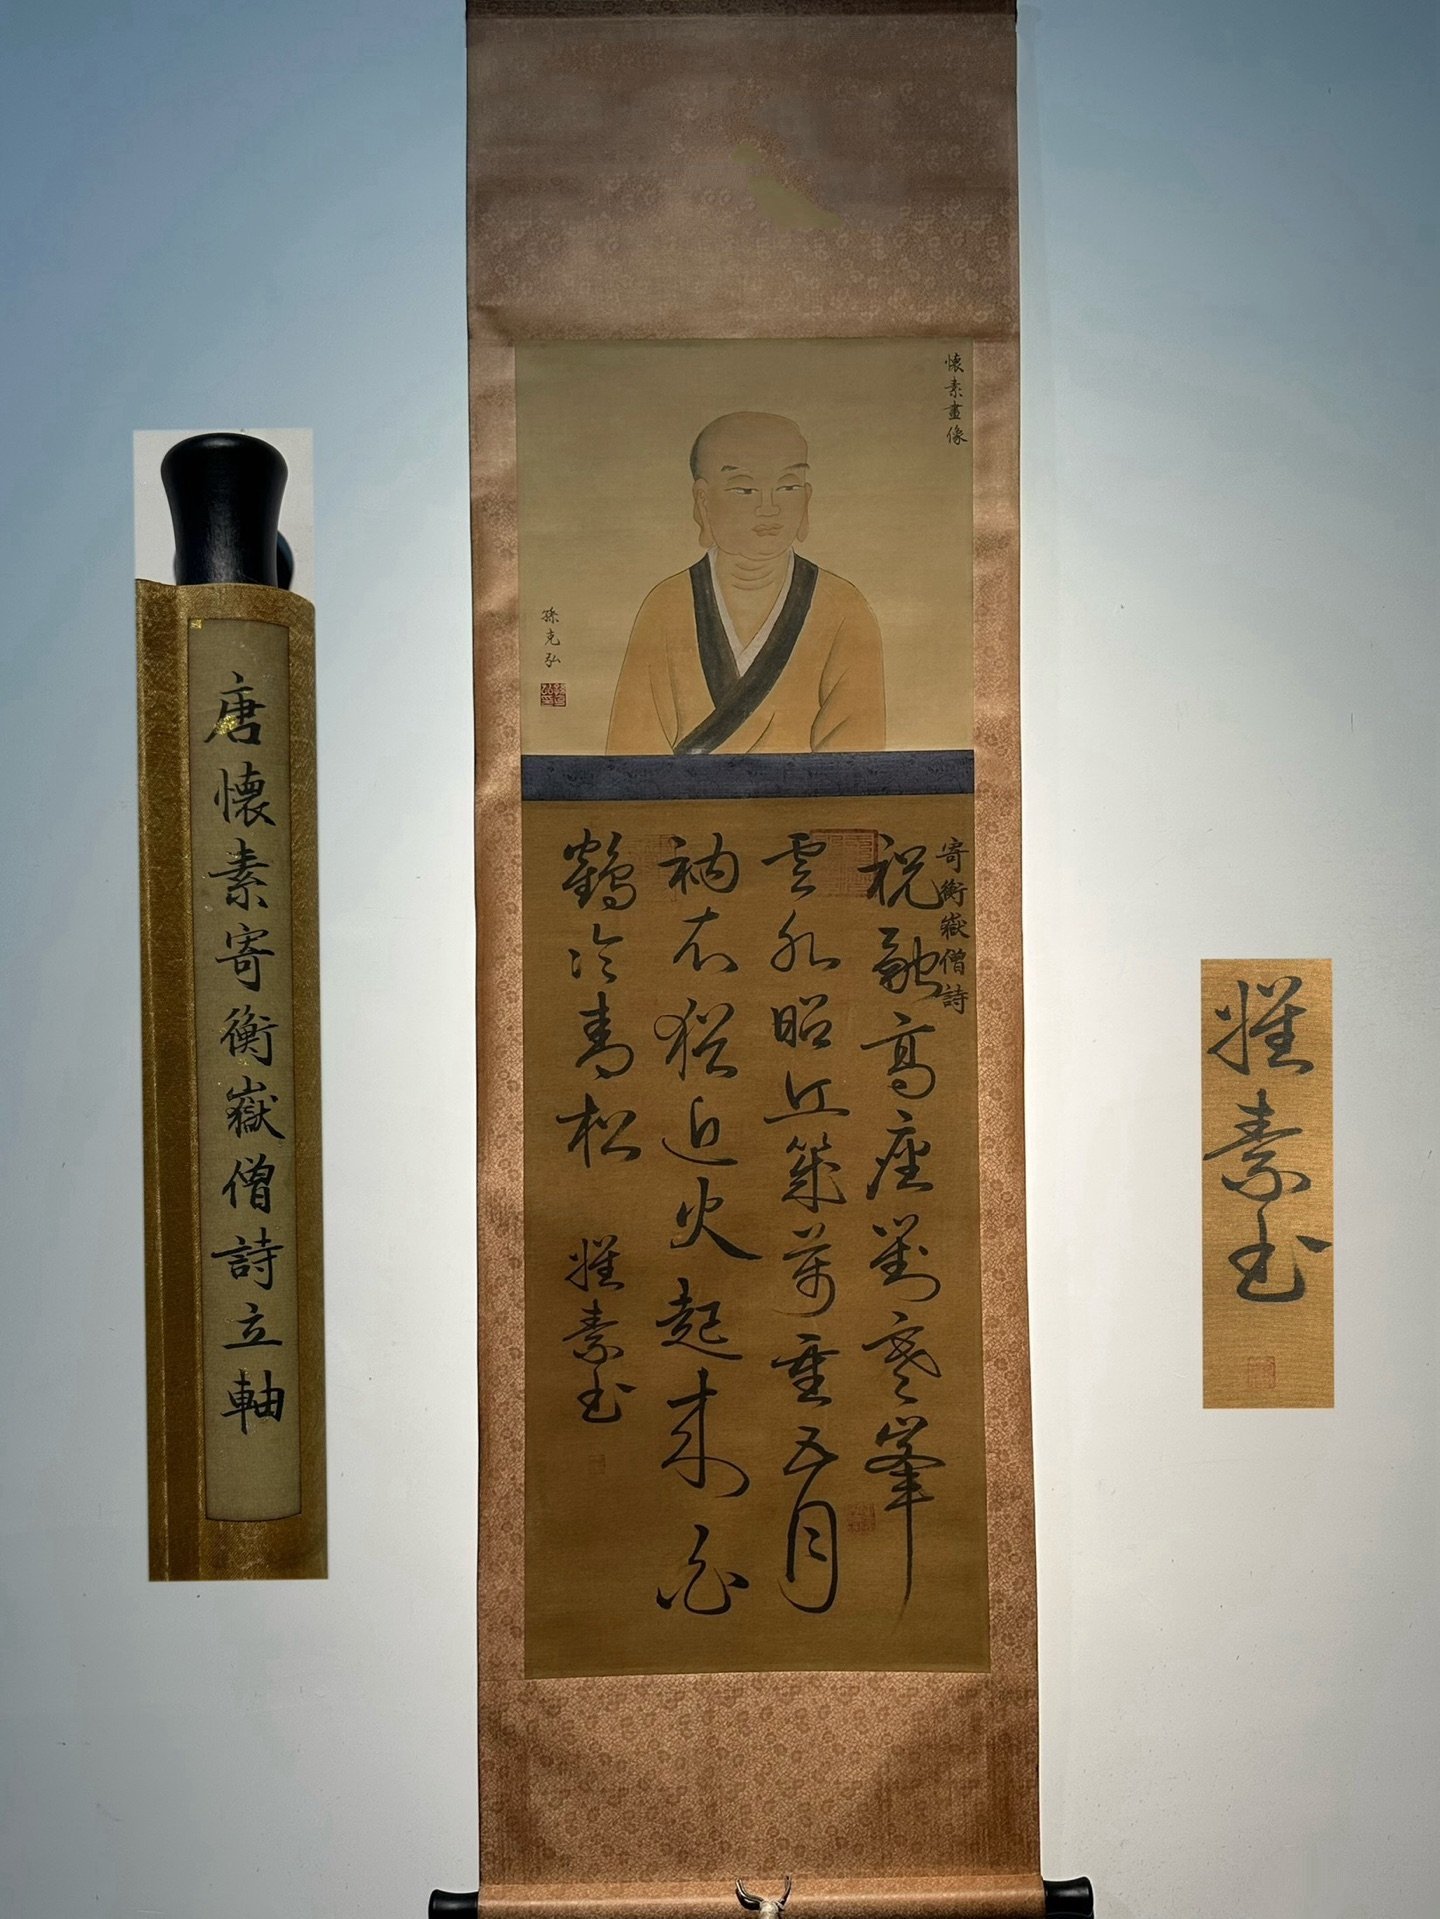 唐懷素寄衡嶽僧詩立軸
懷素畫像
孫克弘
寄衡嶽僧詩
祝融高座對寒峯
雲水昭丘幾萬重五月
衲衣猶近火起來白
鶴冷青松
懷素書
懷素書